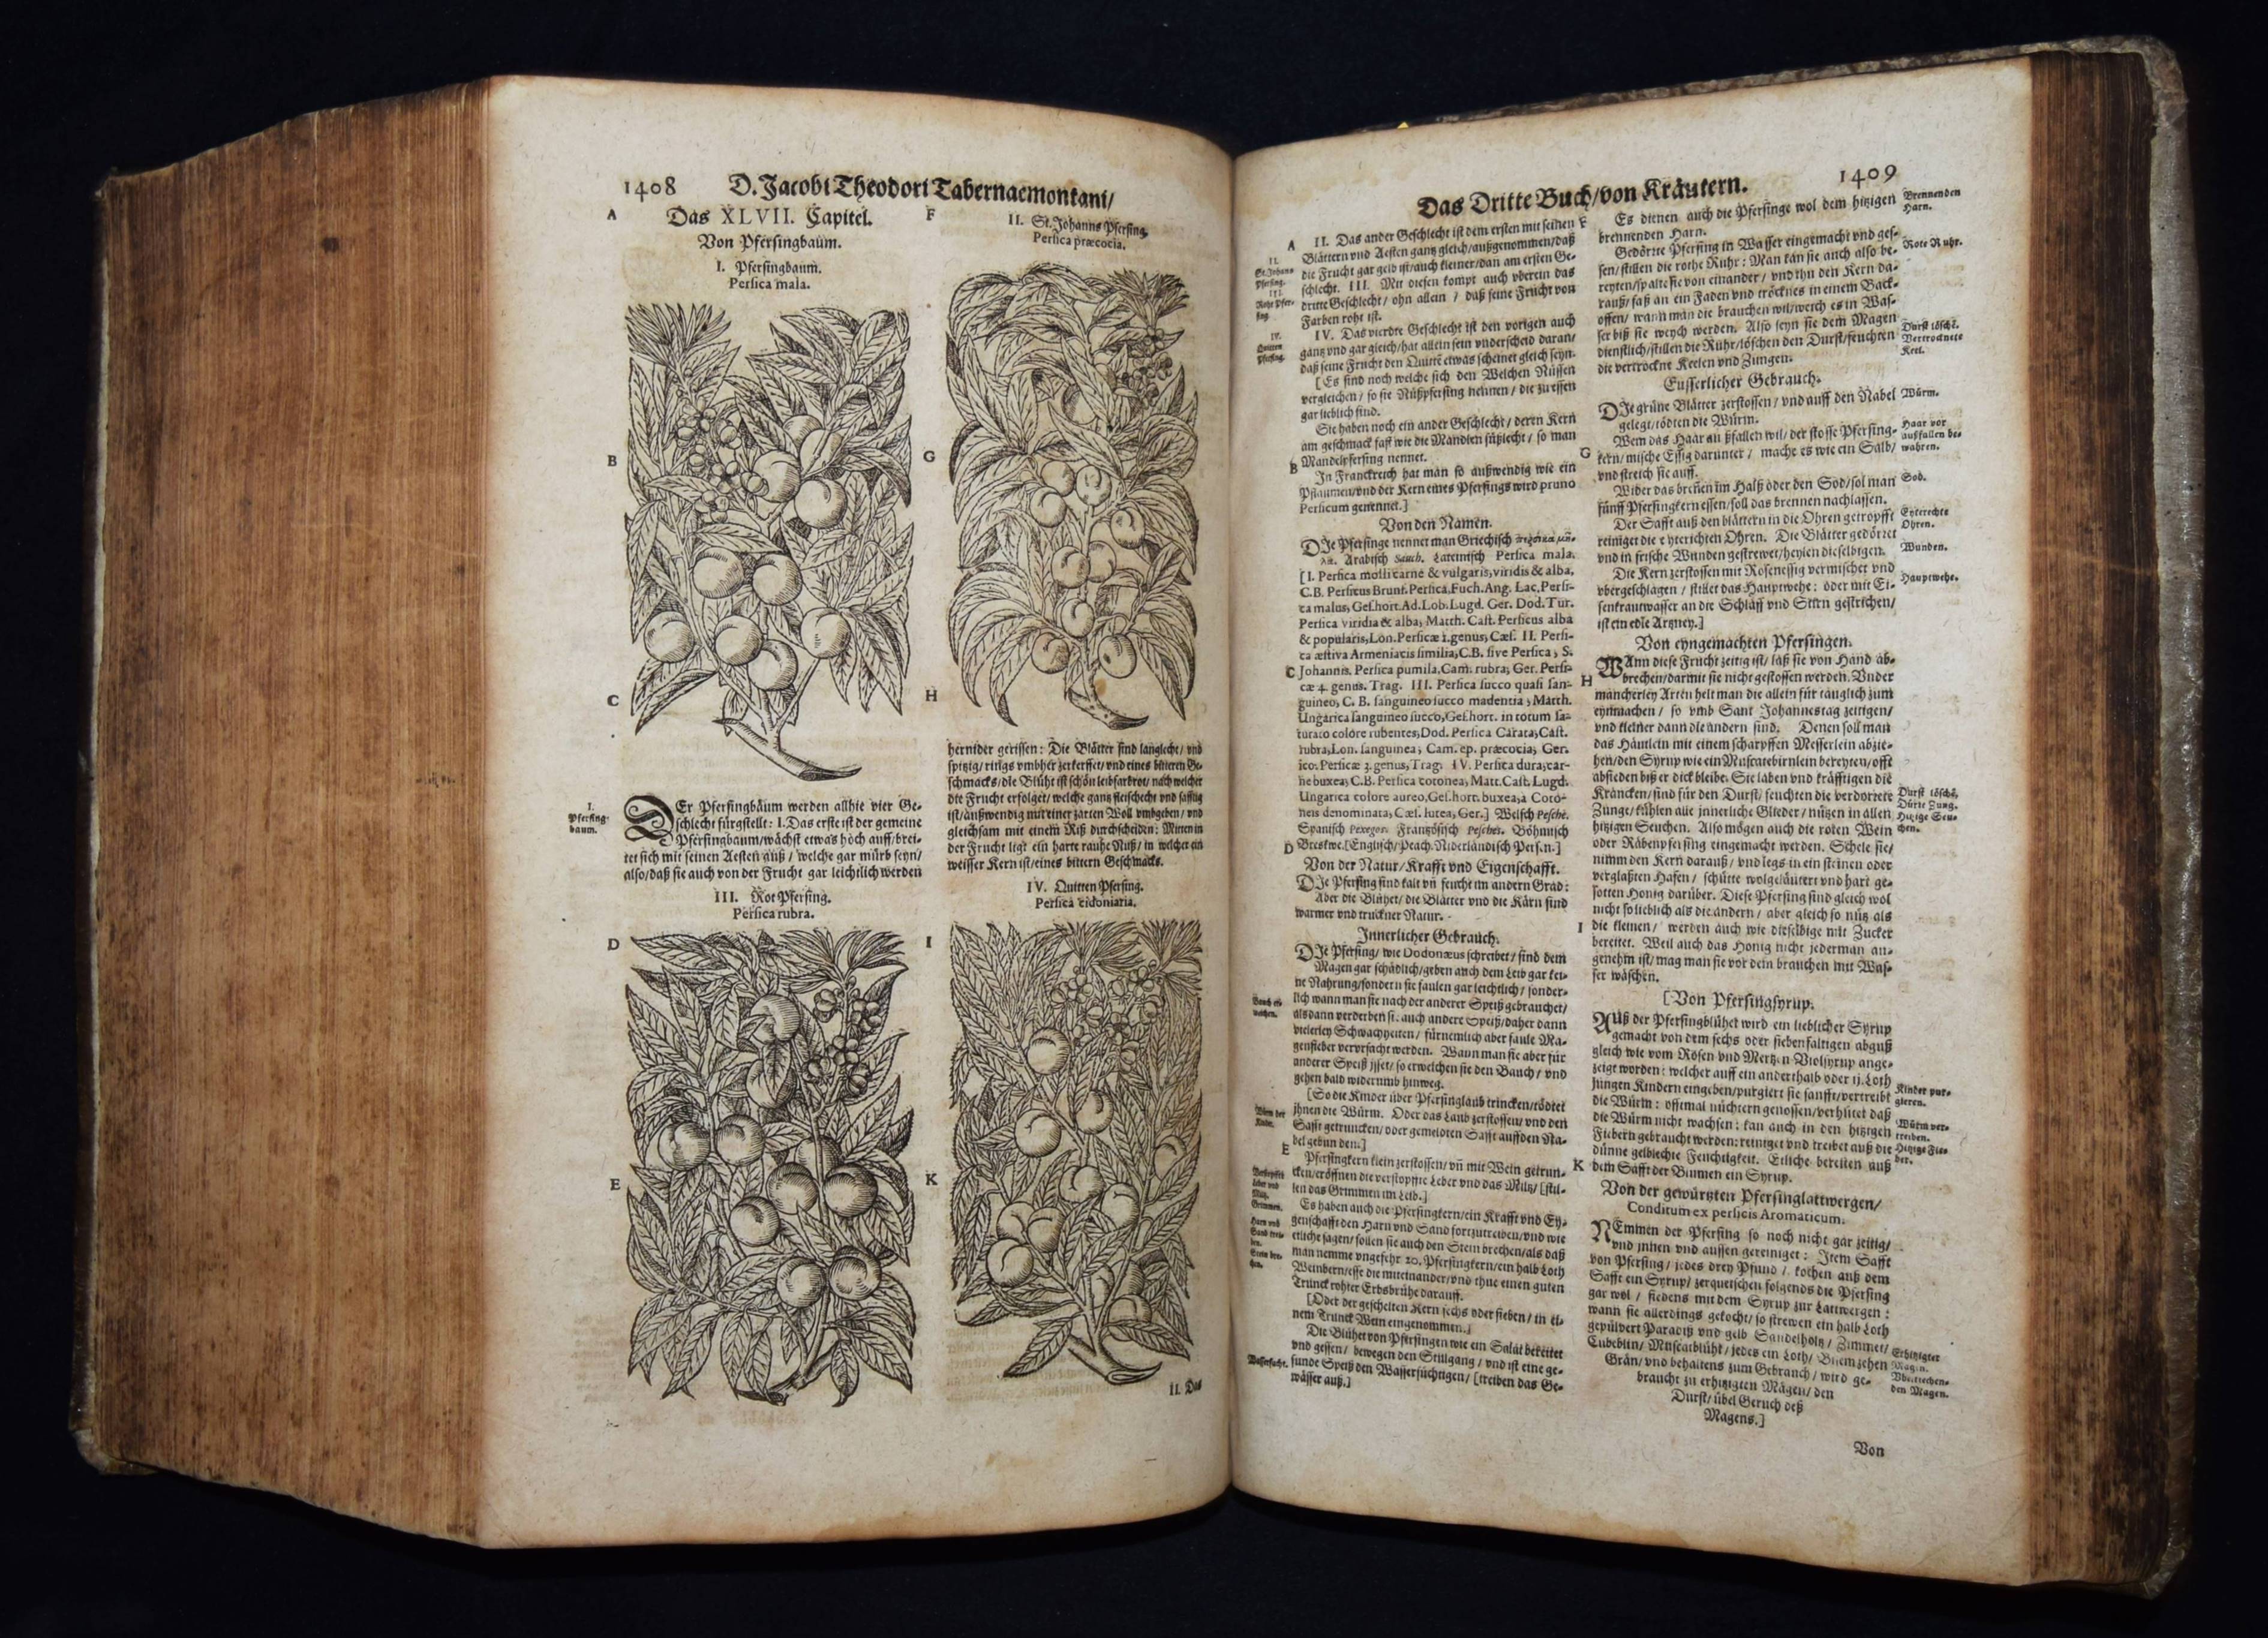 1408
D. Jacobi Theodori Tabernaemontani/
A
Das XLVII. Capitel.
Von Pfersingbaum.
I. Pfersingbaum.
Persica mala.
B
C
I.
Pfersing-
baum.
DEr Pfersingbäum werden allhie vier Ge-
schlecht fürgstellt: I. Das erste ist der gemeine
Pfersingbaum/wächst etwas hoch auff/brei-
tet sich mit seinen Aesten auß/ welche gar mürb seyn/
also/daß sie auch von der Frucht gar leichtlich werden
III. Rot Pfersing.
Persica rubra.
D
E
F
II. St. Johanns Pfersing.
Persica præcocia.
G
H
hernider gerissen: Die Blätter sind langlecht/ vnd
spitzig/ rings vmbher zerkerffet/ vnd eines bitteren Ge-
schmacks/die Blüht ist schön leibfarbrot/ nach welcher
die Frucht erfolget/ welche gantz fleischecht vnd safftig
ist/außwendig mit einer zarten Woll vmbgeben/ vnd
gleichsam mit einem Riß durchscheiden: Mitten in
der Frucht ligt ein harte rauhe Nuß/ in welcher ein
weisser Kern ist/eines bittern Geschmacks.
IV. Quitten Pfersing.
Persica cidoniaria.
I
K
II. Das
Das Dritte Buch/von Kräutern.
1409
A
II. Das ander Geschlecht ist dem ersten mit seinen
Blättern vnd Aesten gantz gleich/außgenommen/daß
die Frucht gar gelb ist/auch kleiner/dan am ersten Ge-
schlecht. III. Mit diesen kompt auch vberein das
dritte Geschlecht/ ohn allein / daß seine Frucht von
Farben roht ist.
IV. Das vierdte Geschlecht ist den vorigen auch
gantz vnd gar gleich/hat allein sein vnderscheid daran/
daß seine Frucht den Quittē etwas scheinet gleich seyn.
[Es sind noch welche sich den Welchen Nüssen
vergleichen/ so sie Nüßpfersing nennen/ die zu essen
gar lieblich sind.
Sie haben noch ein ander Geschlecht/ deren Kern
am geschmack fast wie die Mandlen süßlecht/ so man
B
Mandelpfersing nennet.
In Franckreich hat man so außwendig wie ein
Pflaumen/vnd der Kern eines Pfersings wird pruno
Persicum genennet.]
Von den Namen.
DIe Pfersinge nennet man Griechisch
Arabisch Sauch. Lateinisch Persica mala.
[I. Persica molli carne & vulgaris, viridis & alba,
C.B. Persicus Brunf. Persica, Fuch. Ang. Lac. Persi-
ca malus, Gef. hort. Ad. Lob. Lugd. Ger. Dod. Tur.
Persica viridia & alba, Matth. Cast. Persicus alba
& popularis, Lon. Persicæ 1. genus, Cæs. II. Persi-
ca æstiva Armeniacis similia, C.B. sive Persica, S.
C
Johannis. Persica pumila, Cam. rubra, Ger. Persi-
cæ 4. genus. Trag. III. Persica succo quasi san-
guineo, C. B. sanguineo succo madentia, Matth.
Ungarica sanguineo succo, Gef. hort. in totum sa-
turato colore rubentes, Dod. Persica Carata, Cast.
rubra, Lon. sanguinea, Cam. ep. præcocia, Ger.
ico. Persicæ 3. genus, Trag. IV. Persica dura, car-
ne buxea, C.B. Persica cotonea, Matt. Cast. Lugd.
Ungarica colore aureo, Gef. hort. buxea, à Coto-
neis denominata, Cæs. lutea, Ger.] Welsch Pesche.
Spanisch Pexegos. Frantzösisch Pesches. Böhmisch
D
Breskwe. [Englisch/Peach. Niderländisch Pers.n.]
Von der Natur/Krafft vnd Eigenschafft.
DIe Pfersing sind kalt vn̄ feucht im andern Grad:
Aber die Blühet/ die Blätter vnd die Kärn sind
warmer vnd truckner Natur.
Innerlicher Gebrauch.
DIe Pfersing/ wie Dodonæus schreibet/ sind dem
Magen gar schädlich/geben auch dem Leib gar kei-
ne Nahrung/sondern sie faulen gar leichtlich/ sonder-
lich wann man sie nach der anderer Speiß gebrauchet/
alsdann verderben sie auch andere Speiß/daher dann
vielerley Schwachheiten/ fürnemlich aber faule Ma-
genfieber verursacht werden. Wann man sie aber für
anderer Speiß isset/ so erweichen sie den Bauch/ vnd
gehen bald widerumb hinweg.
[So die Kinder über Pfersinglaub trincken/tödtet
ihnen die Würm. Oder das Laub zerstossen/ vnd den
Safft getruncken/ oder gemeldten Safft auff den Na-
bel gebunden.]
E
Pfersingkern klein zerstossen/ vn̄ mit Wein getrun-
cken/eröffnen die verstopffte Leber vnd das Miltz/ [stil-
len das Grimmen im Leib.]
Es haben auch die Pfersingkern/ein Krafft vnd Ey-
genschafft den Harn vnd Sand fortzutreiben/vnd wie
etliche sagen/ sollen sie auch den Stein brechen/als daß
man nemme vngefehr 20. Pfersingkern/ein halb Loth
Weinbern/esse die miteinander/vnd thue einen guten
Trunck rohter Erbsbrühe darauff.
[Oder der geschelten Kern sechs oder sieben/ in ei-
nem Trunck Wein eingenommen.]
Die Blühet von Pfersingen wie ein Salat bereitet
vnd gessen/ bewegen den Stulgang/ vnd ist eine ge-
sunde Speiß den Wassersüchtigen/ [treiben das Ge-
wässer auß.]
II.
St. Johans
Pfersing.
III.
Roht Pfer-
sing.
IV.
Quitten
Pfersing.
Bauch er-
weichen.
Würm der
Kinder.
Verstopffte
Leber vnd
Miltz.
Grimmen.
Harn vnd
Sand trei-
ben.
Stein bre-
chen.
Wassersucht.
F
Es dienen auch die Pfersinge wol dem hitzigen
brennenden Harn.
Gedörrte Pfersing in Wasser eingemacht vnd ges-
sen/ stillen die rothe Ruhr: Man kan sie auch also be-
reyten/spalte sie von einander/ vnd thu den Kern da-
rauß/ faß an ein Faden vnd tröckne s in einem Back-
offen/ wann man die brauchen wil/ weych es in Was-
ser biß sie weych werden. Also seyn sie dem Magen
dienstlich/stillen die Ruhr/löschen den Durst/feuchten
die vertröckne Keelen vnd Zungen.
Eusserlicher Gebrauch.
DIe grüne Blätter zerstossen/ vnd auff den Nabel
gelegt/tödten die Würm.
Wem das Haar außfallen wil/ der stosse Pfersing-
G
kern/ mische Essig darunter/ mache es wie ein Salb/
vnd streich sie auff.
Wider das breñen im Halß oder den Sod/sol man
fünff Pfersingkern essen/soll das brennen nachlassen.
Der Safft auß den blättern in die Ohren getropfft
reiniget die eyterichten Ohren. Die Blätter gedörret
vnd in frische Wunden gestrewet/heylen dieselbigen.
Die Kern zerstossen mit Rosenessig vermischet vnd
vbergeschlagen / stillet das Hauptwehe: oder mit Ei-
senkrautwasser an die Schläff vnd Stirn gestrichen/
ist ein edle Artzney.]
Von eyngemachten Pfersingen.
WAnn diese Frucht zeitig ist/ laß sie von Hand ab-
brechen/darmit sie nicht gestossen werden. Vnder
H
mancherley Arten helt man die allein für tauglich zum
eynmachen/ so vmb Sant Johannestag zeitigen/
vnd kleiner dann die andern sind. Denen soll man
das Häutlein mit einem scharpffen Messerlein abzie-
hen/den Syrup wie ein Muscatebirnlein bereyten/offt
absieden biß er dick bleibe. Sie laben vnd kräfftigen die
Krancken/sind für den Durst/ feuchten die verdorrete
Zunge/ kühlen alle innerliche Glieder/ nützen in allen
hitzigen Seuchen. Also mögen auch die roten Wein
oder Räbenpfersing eingemacht werden. Schele sie/
nimm den Kern darauß/ vnd legs in ein steinen oder
verglaßten Hafen/ schütte wolgeläutert vnd hart ge-
sotten Honig darüber. Diese Pfersing sind gleich wol
nicht so lieblich als die andern/ aber gleich so nütz als
I
die kleinen/ werden auch wie dieselbige mit Zucker
bereitet. Weil auch das Honig nicht jederman an-
genehm ist/ mag man sie vor dem brauchen mit Was-
ser wäschen.
[Von Pfersingsyrup.
AUß der Pfersingblühet wird ein lieblicher Syrup
gemacht von dem sechs oder siebenfaltigen abguß
gleich wie vom Rosen vnd Mertzen Violsyrup ange-
zeigt worden: welcher auff ein anderthalb oder ij. Loth
jungen Kindern eingeben/purgiert sie sanfft/vertreibt
die Würm: offtmal nüchtern genossen/verhütet daß
die Würm nicht wachsen: kan auch in den hitzigen
Fiebern gebraucht werden: reiniget vnd treibet auß die
dünne gelblechte Feuchtigkeit. Etliche bereiten auß
K
dem Safft der Blumen ein Syrup.
Von der gewürtzten Pfersinglattwergen/
Conditum ex persicis Aromaticum.
NEmmen der Pfersing so noch nicht gar zeitig/
vnd innen vnd aussen gereiniget: Item Safft
von Pfersing/ jedes drey Pfund / kochen auß dem
Safft ein Syrup/ zerquetschen folgends die Pfersing
gar wol / siedens mit dem Syrup zur Lattwergen:
wann sie allerdings gekocht/ so strewen ein halb Loth
gepülvert Paradiß vnd gelb Sandelholtz/ Zimmet/
Cubeblin/ Muscatblüht/ jedes ein Loth/ Bisem zehen
Grän/ vnd behaltens zum Gebrauch/ wird ge-
braucht zu erhitzigten Mägen/ den
Durst/ übel Geruch deß
Magens.]
Brennenden
Harn.
Rote Ruhr.
Durst löschē.
Vertrocknete
Keel.
Würm.
Haar vor
außfallen be-
wahren.
Sod.
Eyterechte
Ohren.
Wunden.
Hauptwehe.
Durst löschē.
Dürre Zung.
Hitzige Seu-
chen.
Kinder pur-
gieren.
Würm ver-
treiben.
Hitzige Fie-
ber.
Erhitzigter
Magen.
den Magen.
Von